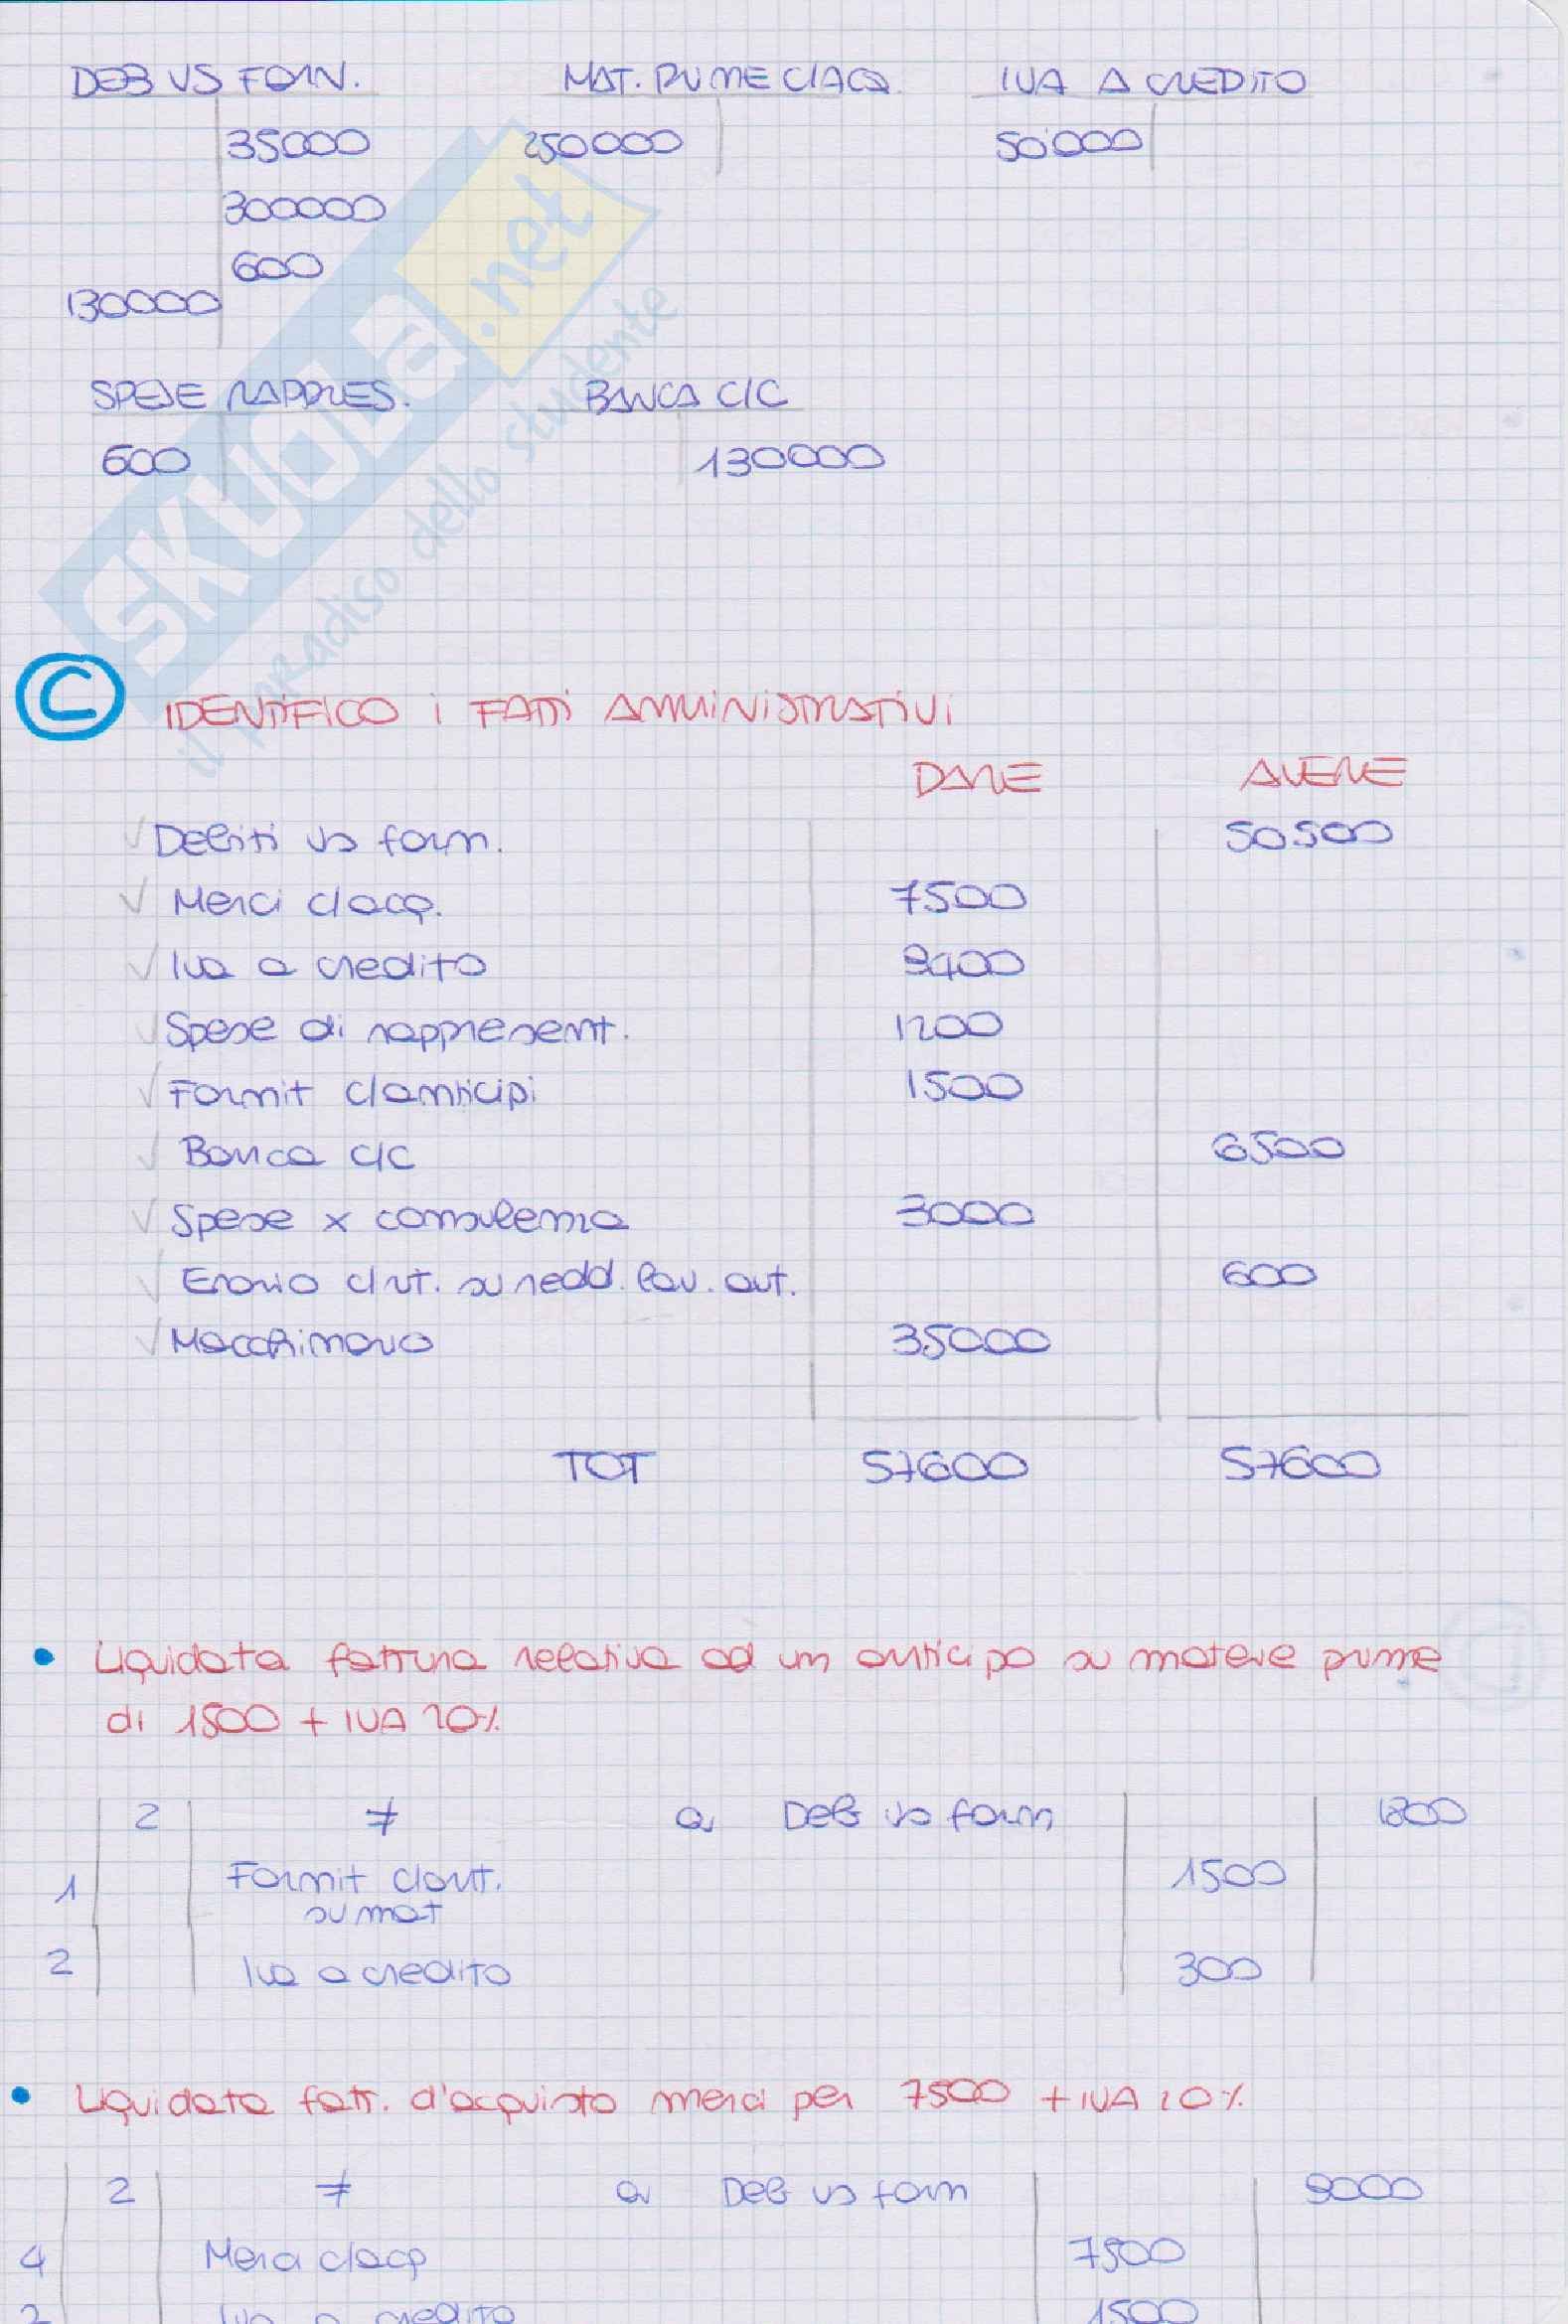 DEB VS FORN. MAT. PRIME C/ACQ IVA A CREDITO
35000 250000 50'000
300000
600
130000
SPESE RAPPRES. BANCA C/C
600 130000
SKUOLA.net
il paradiso dello studente
C IDENTIFICO I FATTI AMMINISTRATIVI
DARE AVERE
Debiti vs forn. 50500
Merci c/acq. 7500
Iva a credito 9400
Spese di rappresent. 1200
Fornit c/anticipi 1500
Banca c/c 6500
Spese x consulenza 3000
Erario c/rit. su redd. lav. aut. 600
Macchinario 35000
TOT 57600 57600
• Liquidata fattura relativa ad un anticipo su materie prime
di 1500 + IVA 20%
2 ≠ a Deb vs forn 1800
1 Fornit c/ant. 1500
su mat
2 Iva a credito 300
• Liquidata fatt. d'acquisto merci per 7500 + IVA 20%
2 ≠ a Deb vs forn 9000
4 Merci c/acq 7500
2 Iva a credito 1500